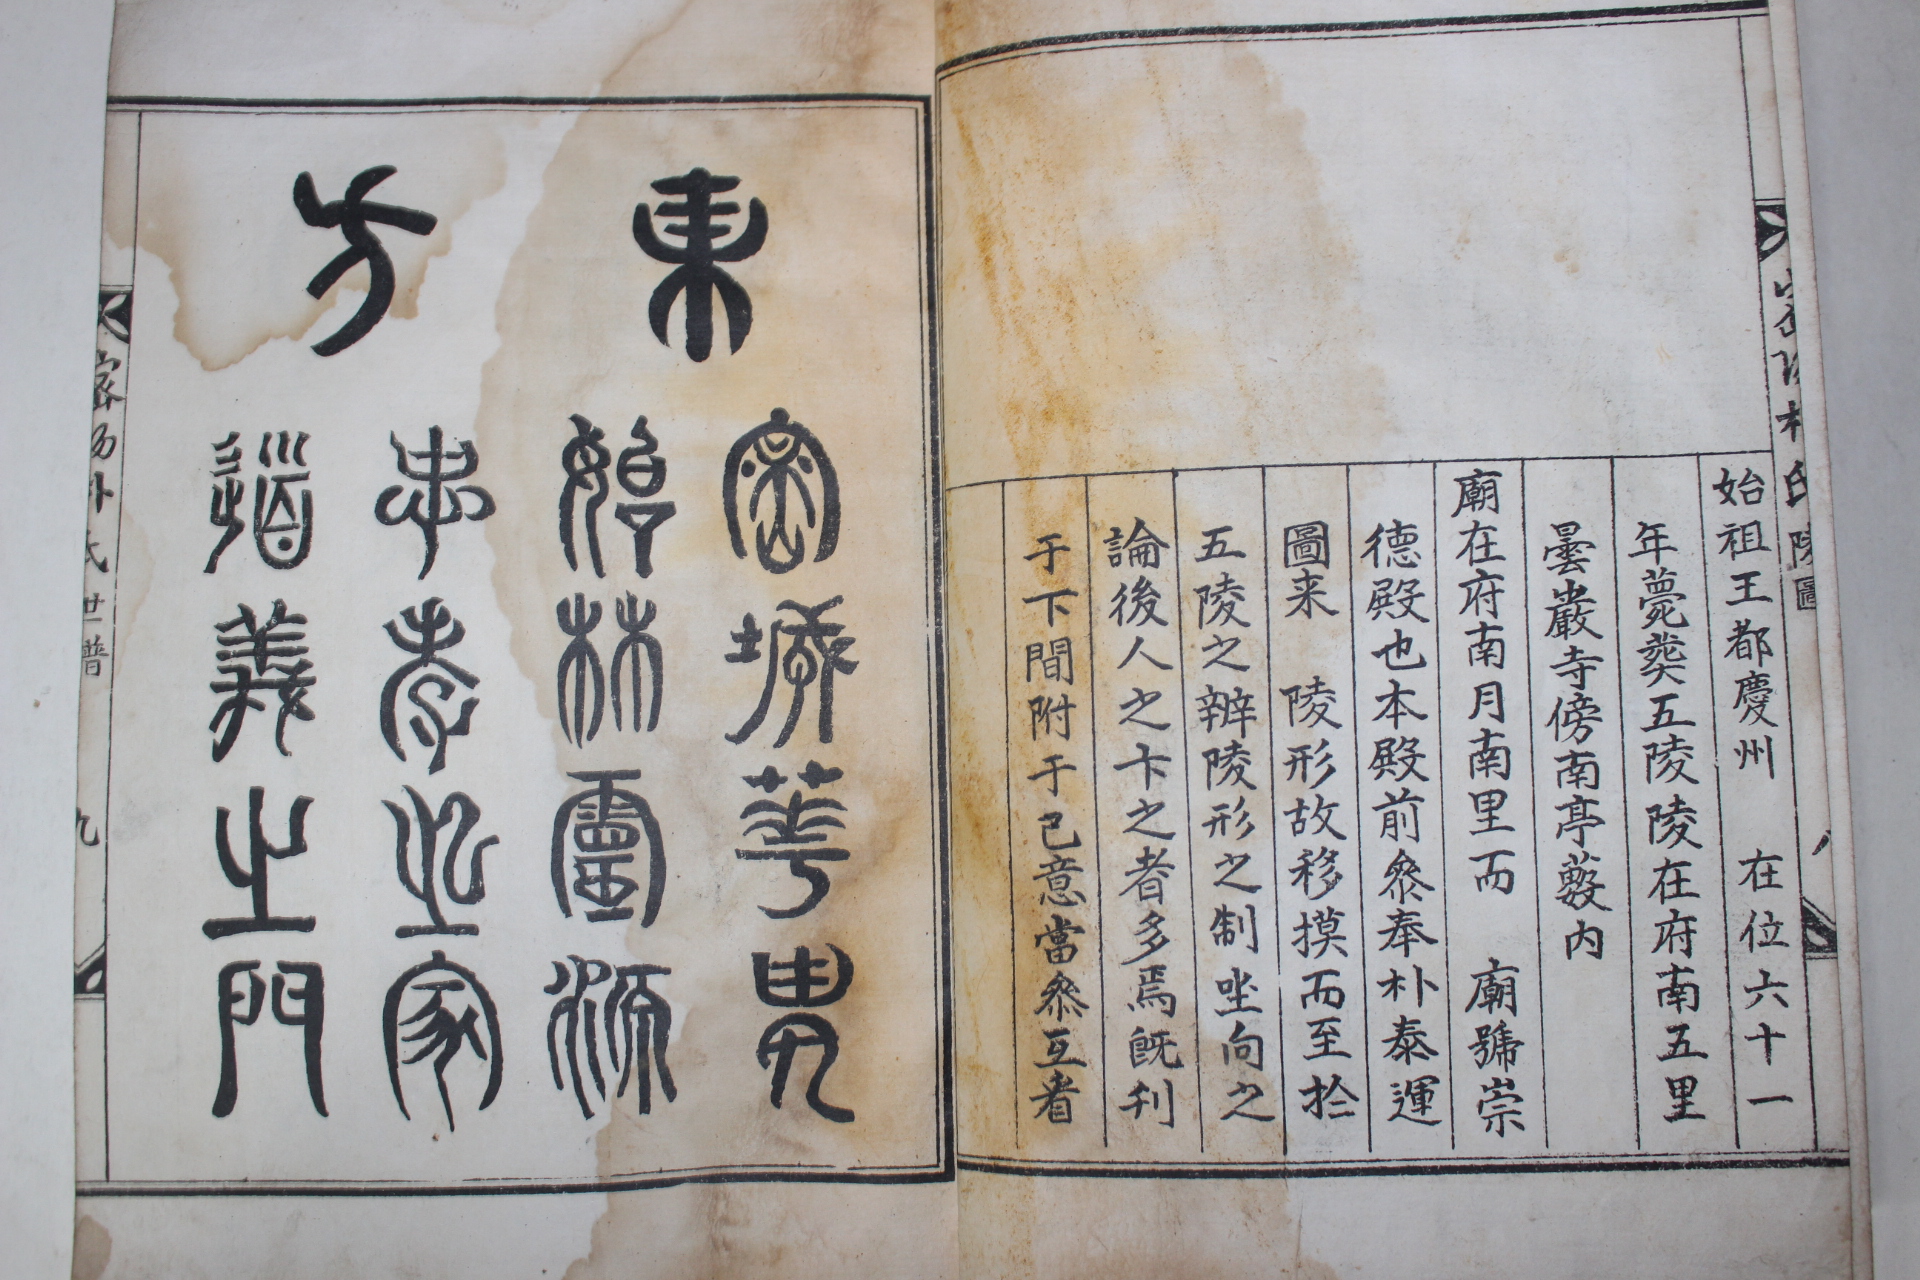 密陽朴氏
陵圖
始祖王都慶州 在位六十一
年薨葬五陵陵在府南五里
曇巖寺傍南亭藪内
廟在府南月南里而 廟號崇
德殿也本殿前叅奉朴泰運
圖来 陵形故移摸而至於
五陵之辨陵形之制坐向之
論後人之卞之者多焉旣刊
于下間附于己意當叅互者
東方
密城華冑
始林靈源
忠孝之家
道義之門
密陽朴氏世譜
九